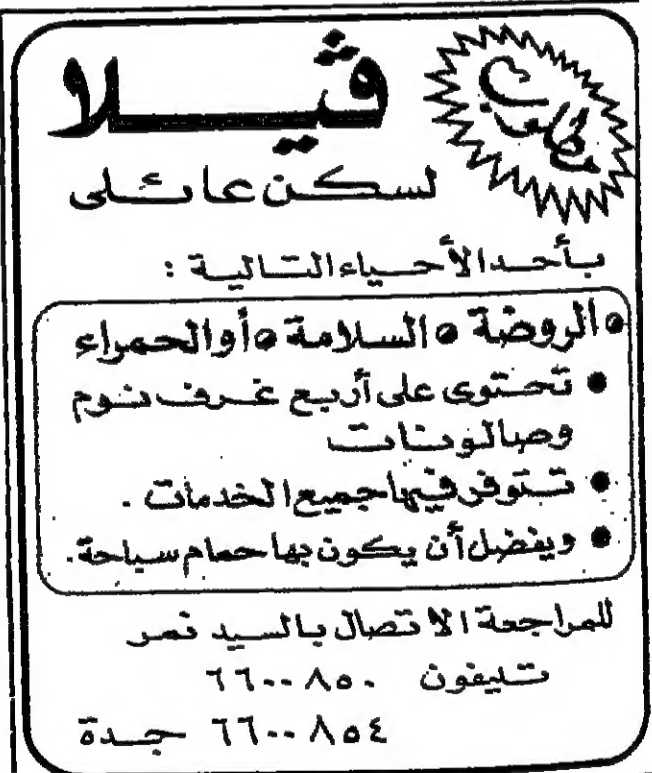 مطلوب
ڤيلا
لسكن عائلى
بأحد الأحياء التالية :
• الروضة • السلامة • أو الحمراء
• تحتوى على أربع غرف نوم
وصالونات
• تتوفر فيها جميع الخدمات .
• ويفضل أن يكون بها حمام سباحة .
للمراجعة الاتصال بالسيد نمر
تليفون ٦٦٠٠٨٥٠
٦٦٠٠٨٥٤ جدة